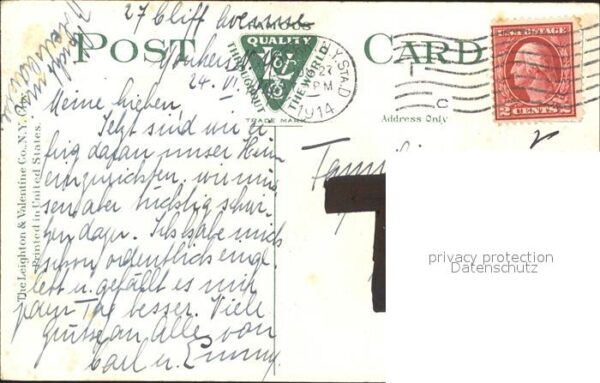 27 Cliff Avenue
Yonkers N.Y.
24. VI.
POST CARD
QUALITY
THE
THE WORLD
TRADE MARK
STA.D
27
PM
1914
Address Only
U.S. POSTAGE
2 CENTS 2
Meine Lieben.
Jetzt sind wir ei
frig daran unser Heim
einzurichten. wir müs
sen aber tüchtig schwi
tzen dazu. Ich habe mich
schon ordentlich eing
lebt u. gefällt es mir
jeden Tag besser. Viele
Grüsse an Alle von
Carl u. Emmy.
Famil
The Leighton & Valentine Co., N.Y. City.
Printed in United States.
privacy protection
Datenschutz